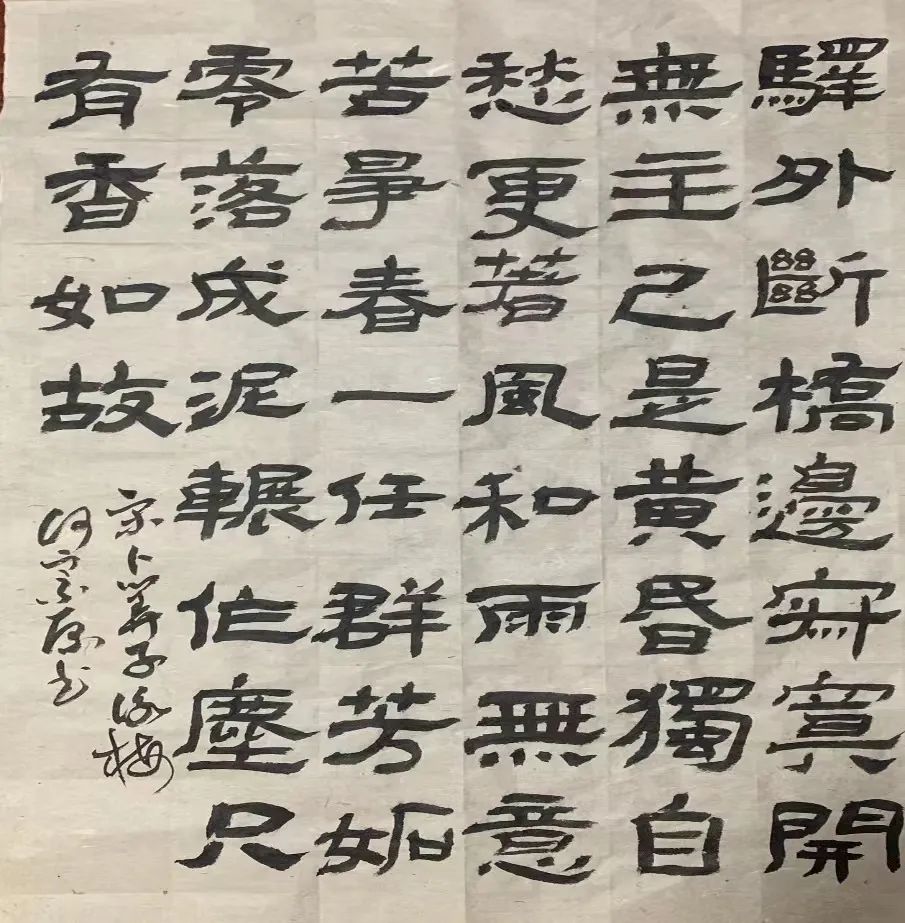 驛外斷橋邊寂寞開
無主已是黄昏獨自
愁更著風和雨無意
苦爭春一任群芳妬
零落成泥輾作塵只
有香如故
卜算子詠梅
书